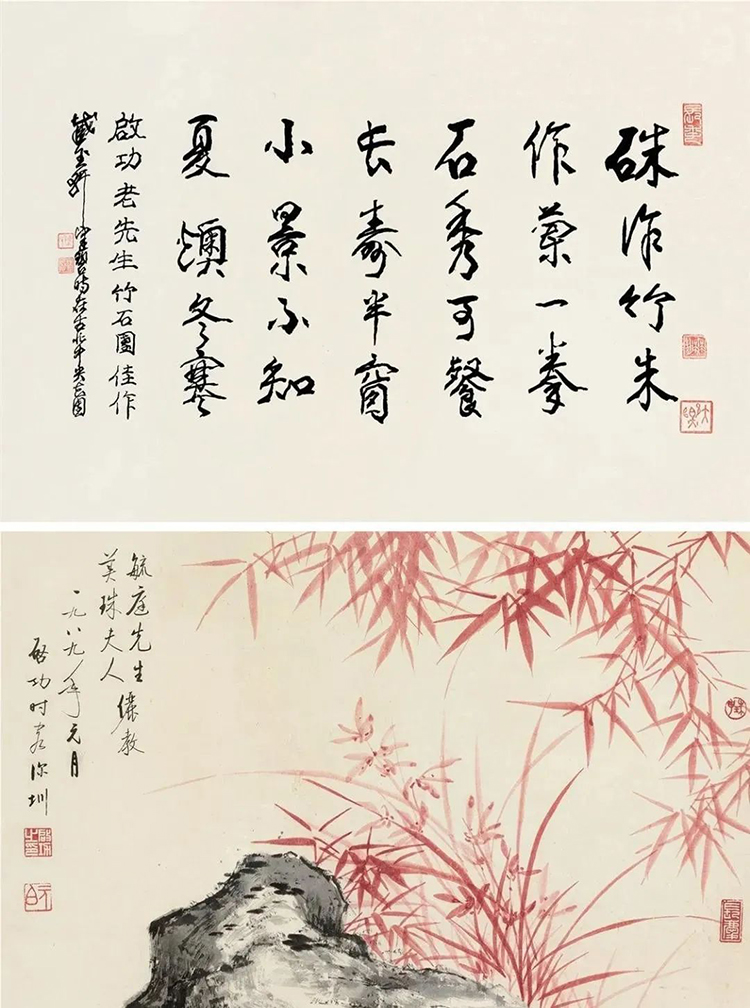 硃作竹朱
作蘭一拳
石秀可餐
長壽半窗
小景不知
夏燠冬寒
啟功老先生竹石圖佳作
時在古北中央公園
毓庭先生
美珠夫人
儷教
一九八九年元月
啓功时客深圳